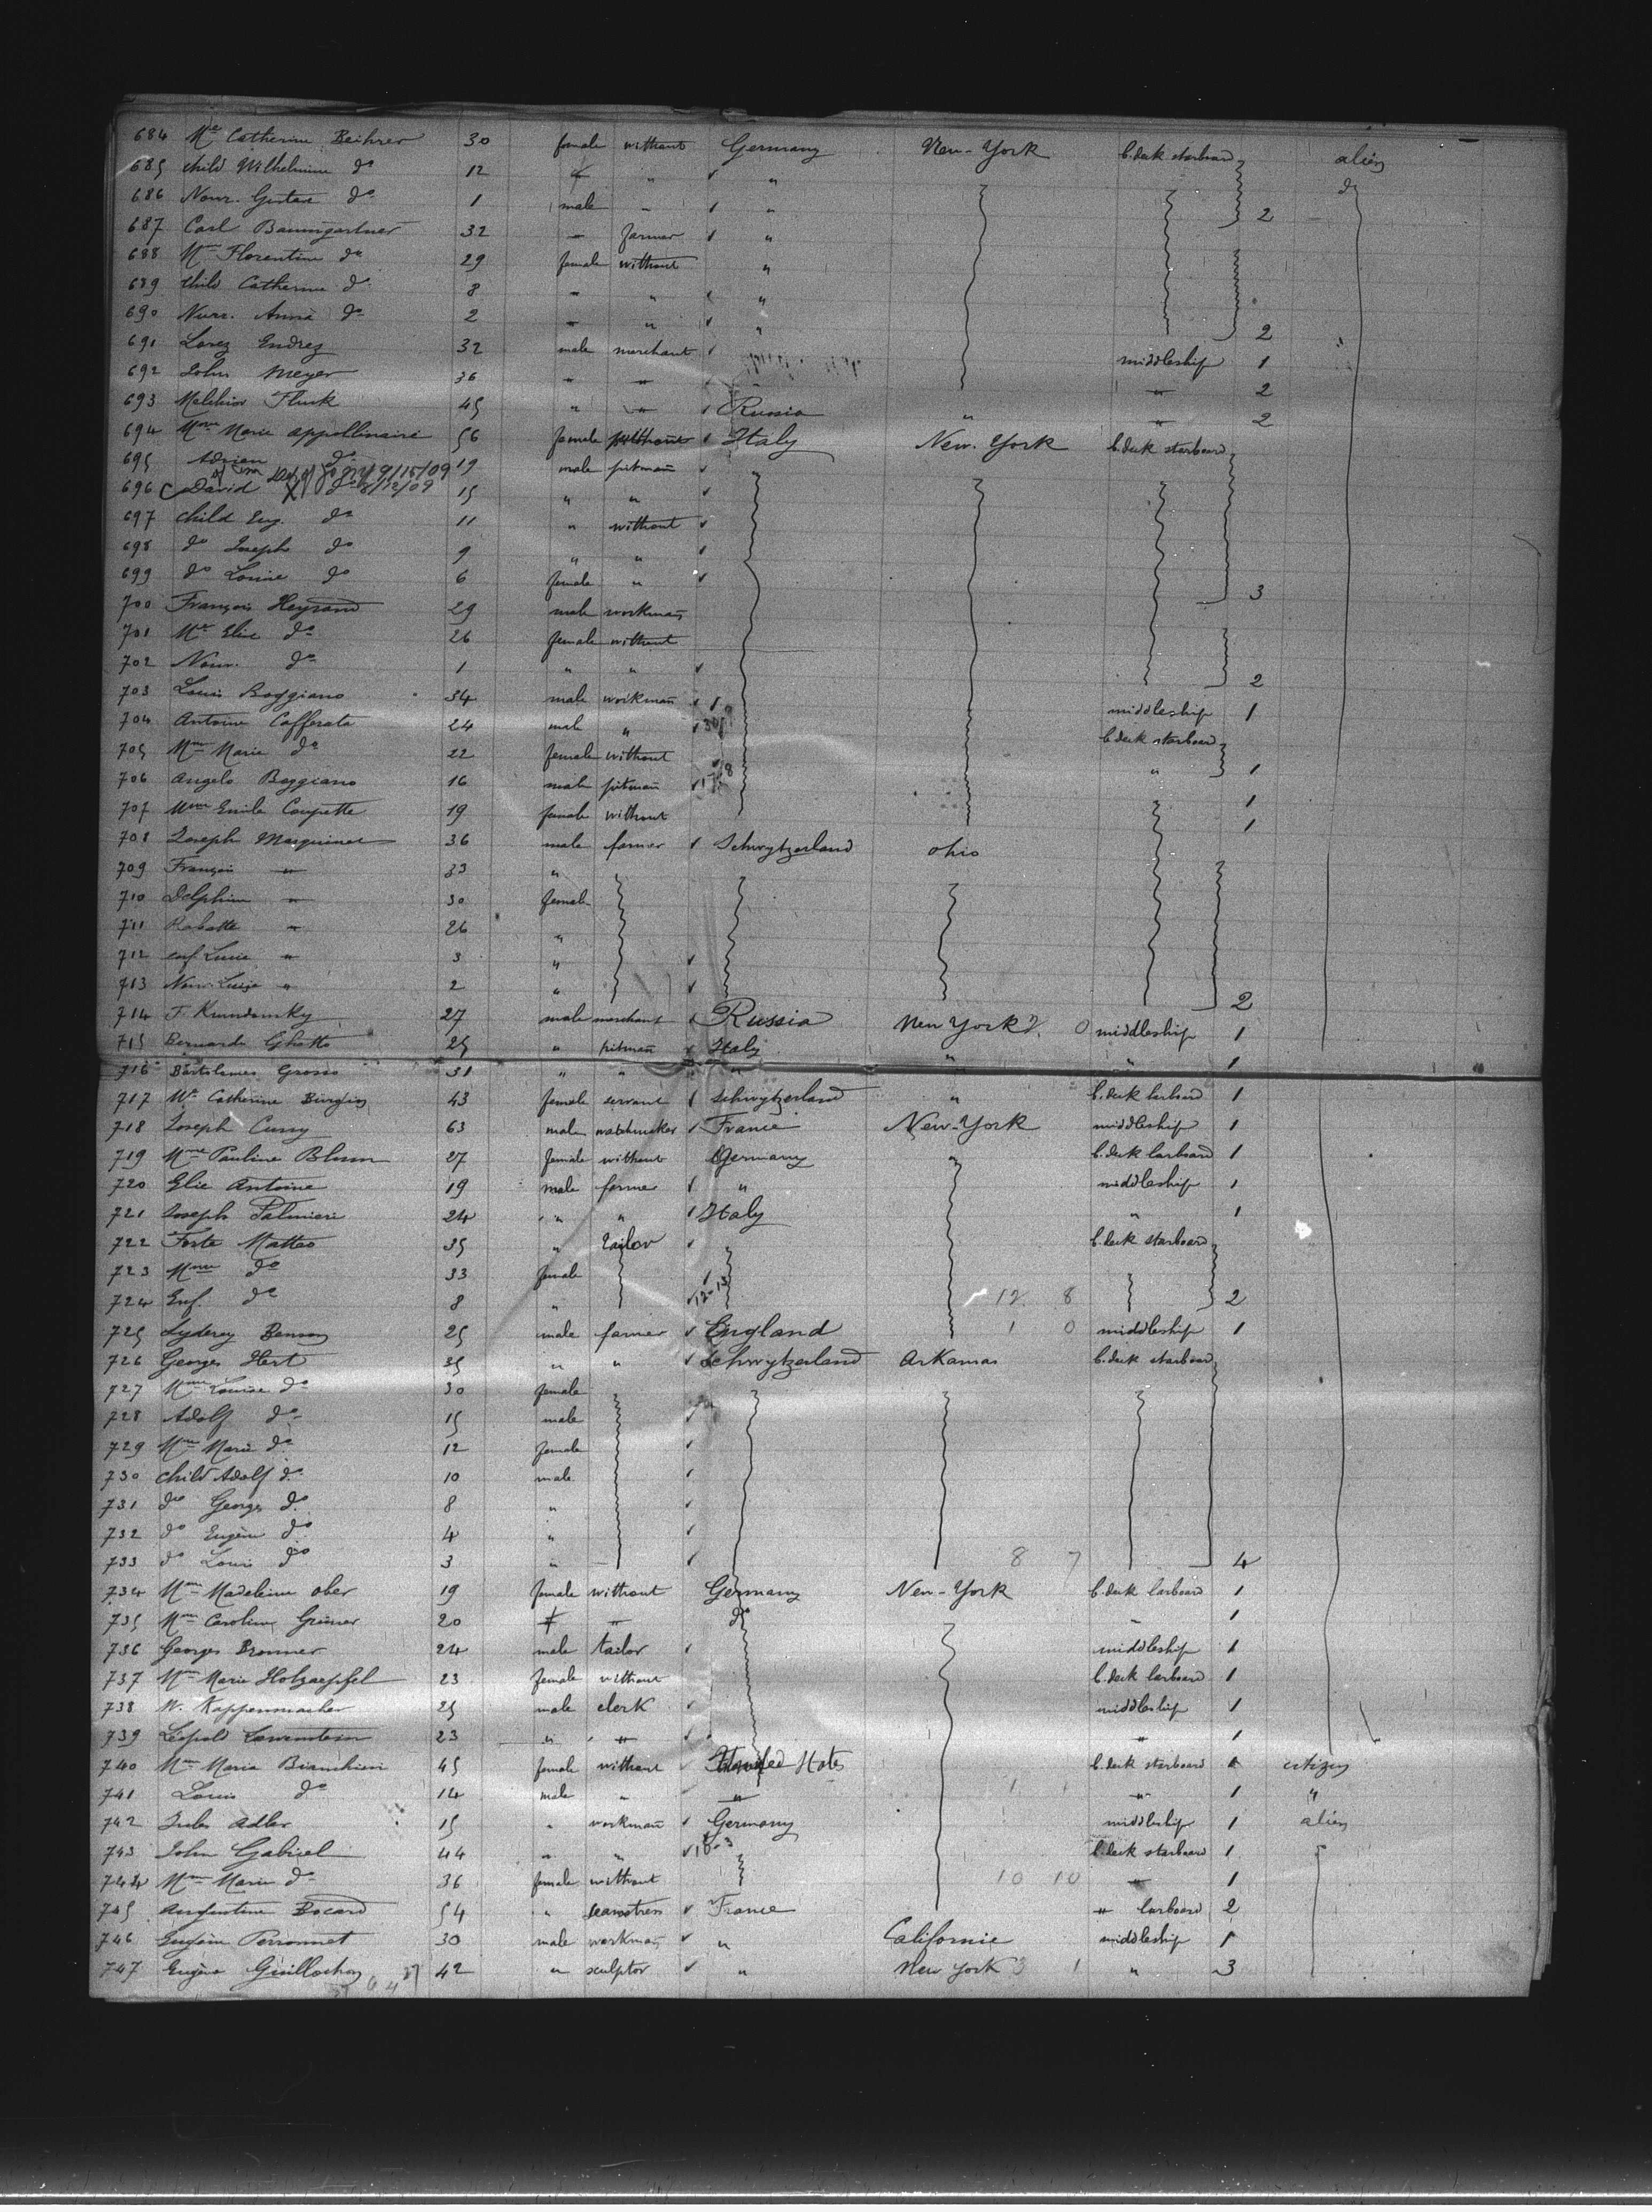 684 Me Catherine Beihrer 30 female without Germany New-York C. deck starboard alien
685 child Wilhelmine do 12 " " " do
686 Nour. Gustave do 1 male " " 2
687 Carl Baumgartner 32 " farmer "
688 Mme Florentine do 29 female without "
689 child Catherine do 8 " " "
690 Nurr. Anna do 2 " " " 2
691 Lorez Endrez 32 male merchant middleship 1
692 John Meyer 36 " " " 2
693 Melchior Fluck 45 " " Russia " " 2
694 Mme Marie appollinaire 56 female without Italy New-York C. deck starboard
695 Adrien do 19 male pitman
9/15/09
696 C David do 8/12/09 15 " "
697 child Eug. do 11 " without
698 do Joseph do 9 " "
699 do Louise do 6 female " 3
700 François Heyraud 29 male workman
701 Me Elise do 26 female without
702 Nour. do 1 " " 2
703 Louis Boggiano 34 male workman middleship 1
704 Antoine Cafferata 24 male " C. deck starboard
705 Mme Marie do 22 female without " 1
706 Angelo Boggiano 16 male pitman 1
707 Mme Emile Coupette 19 female without 1
708 Joseph Masquinet 36 male farmer Schwytzerland ohio
709 François " 33 "
710 Delphine " 30 female
711 " 26 "
712 enf. Lucie " 3 "
713 Nour. " 2 " 2
714 F. Krundansky 27 male merchant Russia New York 2 0 middleship 1
715 Bernardo Ghatto 25 " pitman Italy " " 1
716 Bartolomeo Grosso 31 " " "
717 Me Catherine Burgin 43 female servant Schwytzerland " C. deck larboard 1
718 Joseph Cuny 63 male watchmaker France New-York middleship 1
719 Mme Pauline Blum 27 female without Germany " C. deck larboard 1
720 Elie Antoine 19 male farmer " middleship 1
721 Joseph Palmieri 24 " " Italy " 1
722 Forte Matteo 35 " tailor C. deck starboard
723 Mme do 33 female
724 Enf. do 8 " 12-13 12 8 2
725 Lyderey Benson 25 male farmer England 1 0 middleship 1
726 Georges Hert 35 " " Schwytzerland Arkansas C. deck starboard
727 Mme Louise do 30 female
728 Adolf do 15 male
729 Mme Marie do 12 female
730 child Adolf do 10 male
731 do Georges do 8 "
732 do Eugène do 4 "
733 do Louis do 3 " 8 7 4
734 Mme Madeleine ober 19 female without Germany New-York C. deck larboard 1
735 Mme Caroline Grüner 20 " " do " 1
736 Georges Bronner 24 male tailor middleship 1
737 Mme Marie Holzaepfel 23 female without C. deck larboard 1
738 W. Kappenmacher 25 male clerk middleship 1
739 Léopold Lowenstein 23 " " " 1
740 Mme Maria Bianchini 45 female without United States C. deck starboard 1 citizen
741 Louis do 14 male " " 1 " 1 "
742 Jules Adler 15 " workman Germany middleship 1 alien
743 John Gabriel 44 " " C. deck starboard 1
744 Mme Marie do 36 female without 10 10 " 1
745 Augustine Bocard 54 " seamstress France " larboard 2
746 Eugène Perronnet 30 male workman " Californie middleship 1
747 Eugène Guillochon 42 " sculptor " New York 3 1 " 3